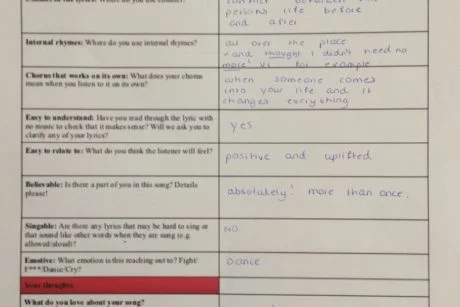 personal life before
and after
Internal rhymes: Where do you use internal rhymes?
all over the place
- and thought I didn't need no
more! V1 for example
Chorus that works on its own: What does your chorus
mean when you listen to it on its own?
when someone comes
into your life and it
changes everything
Easy to understand: Have you read through the lyric with
no music to check that it makes sense? Will we ask you to
clarify any of your lyrics?
yes
Easy to relate to: What do you think the listener will feel?
positive and uplifted
Believable: Is there a part of you in this song? Details
please!
absolutely! more than once.
Singable: Are there any lyrics that may be hard to sing or
that sound like other words when they are sung (e.g.
allowed/aloud)?
NO
Emotive: What emotion is this reaching out to? Fight/
F***/Dance/Cry?
Dance
Your thoughts
What do you love about your song?